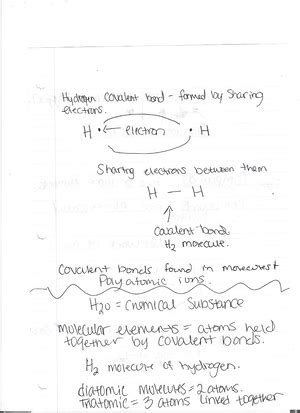 Hydrogen Covalent bond - formed by Sharing
electrons.
H • ← electron • H
Sharing electrons between them
H — H
↑
Covalent bond
H2 molecule.
Covalent bonds found in molecules +
Polyatomic ions.
H2O = Chemical Substance
molecular elements = atoms held
together by covalent bonds.
H2 molecule of hydrogen.
diatomic molecules = 2 atoms.
triatomic = 3 atoms linked together